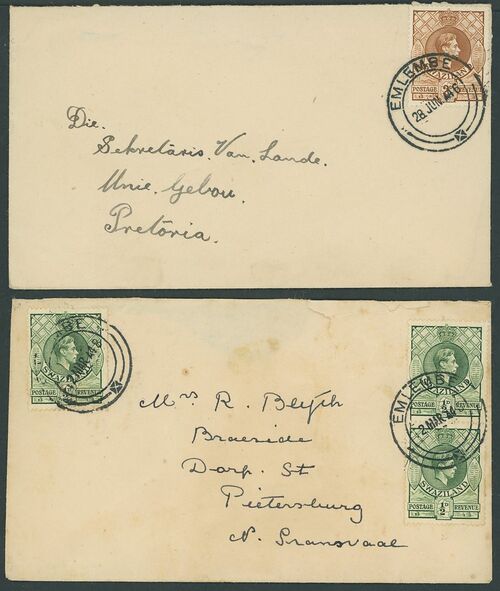 EMLEMBE
28 JUN 46
SWAZILAND
POSTAGE REVENUE
Die.
Sekretaris. Van. Lande.
Unie. Gebou.
Pretoria.
SWAZILAND
POSTAGE REVENUE
EMLEMBE
2 MAR 44
SWAZILAND
POSTAGE ½D REVENUE
SWAZILAND
POSTAGE ½D REVENUE
Mrs R. Blyth
Braeside
Dorp. St
Pietersburg
N. Transvaal